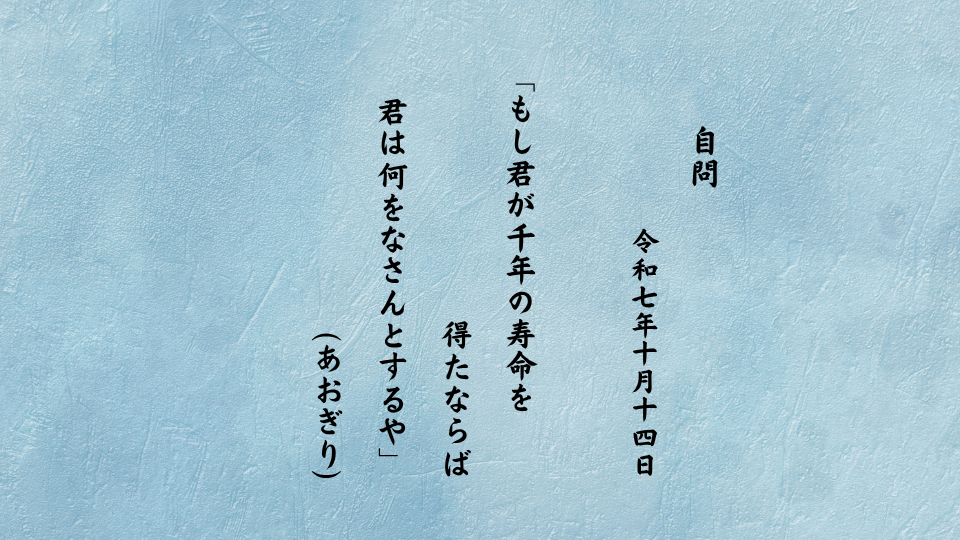 自問
令和七年十月十四日
「もし君が千年の寿命を
得たならば
君は何をなさんとするや」
(あおぎり)